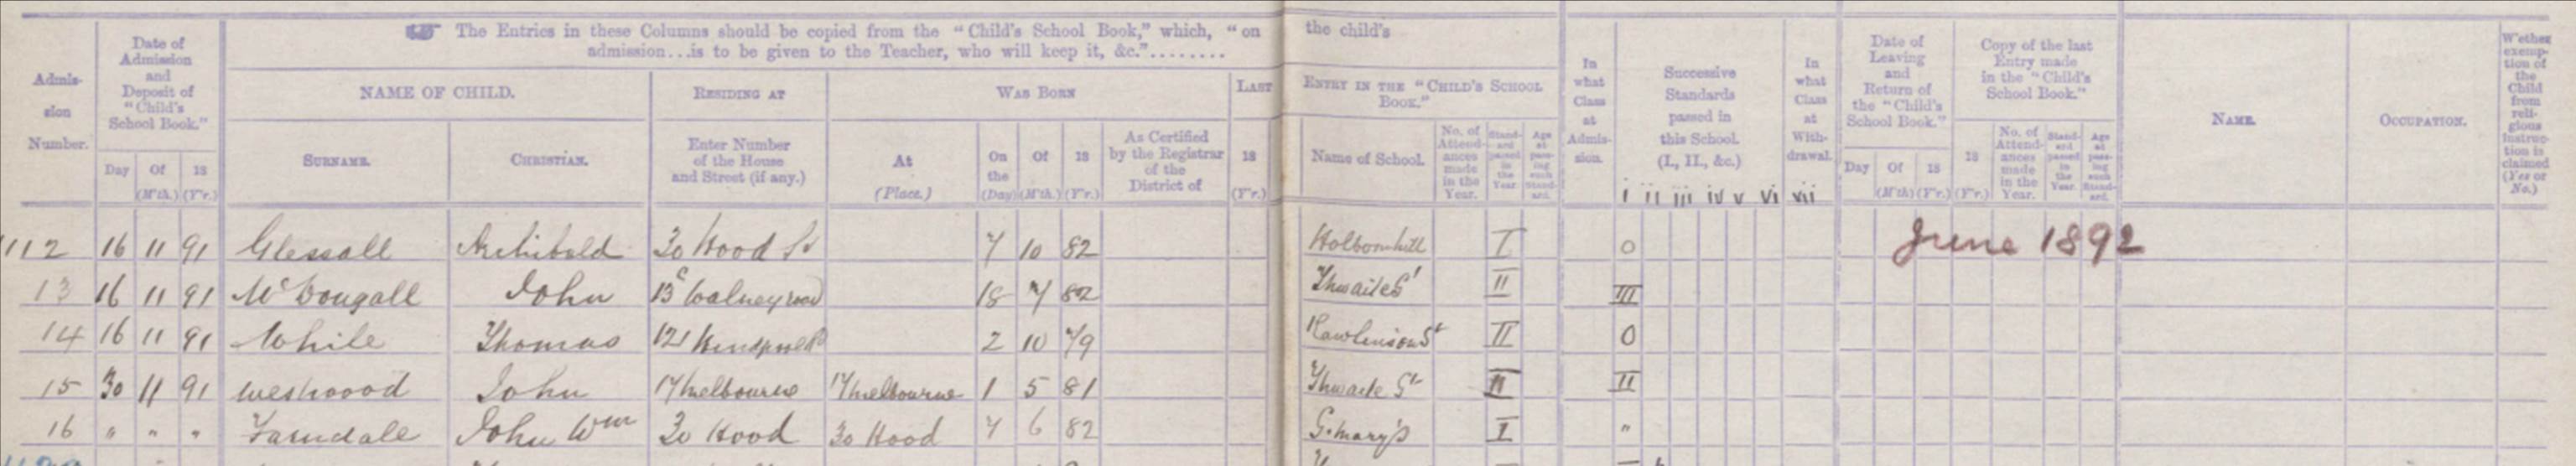 ☛ The Entries in these Columns should be copied from the "Child's School Book," which, "on the child's
admission...is to be given to the Teacher, who will keep it, &c."........
Admis-
sion
Number.
Date of
Admission
and
Deposit of
"Child's
School Book."
Day Of (M'th.) 18 (Y'r.)
NAME OF CHILD.
SURNAME. CHRISTIAN.
RESIDING AT
Enter Number
of the House
and Street (if any.)
WAS BORN
At
(Place.)
On
the
(Day) Of (M'th.) 18 (Y'r.)
As Certified
by the Registrar
of the
District of
LAST
18
(Y'r.)
ENTRY IN THE "CHILD'S SCHOOL
BOOK."
Name of School.
No. of
Attend-
ances
made
in the
Year.
Stand-
ard
passed
in
the
Year.
Age
at
pass-
ing
such
Stand-
ard.
In
what
Class
at
Admis-
sion.
Successive
Standards
passed in
this School.
(I., II., &c.)
i ii iii iv v vi vii
In
what
Class
at
With-
drawal.
Date of
Leaving
and
Return of
the "Child's
School Book."
Day Of (M'th) 18 (Y'r.)
Copy of the last
Entry made
in the "Child's
School Book."
18
(Y'r.)
No. of
Attend-
ances
made
in the
Year.
Stand-
ard
passed
in
the
Year.
Age
at
pass-
ing
such
Stand-
ard.
NAME.
OCCUPATION.
W'ether
exemp-
tion of
the
Child
from
reli-
gious
Instruc-
tion is
claimed
(Yes or
No.)
1112 16 11 91 Glessall Archibald 30 Hood St 7 10 82 Holbornhill I 0 June 1892
13 16 11 91 McDougall John 13 Walney road 18 7 82 Thwaite St II III
14 16 11 91 While Thomas 121 2 10 79 Rawlinson St II 0
15 30 11 91 Westwood John 17 Melbourne 17 Melbourne 1 5 81 Thwaite St II II
16 " " " Farndale John Wm 30 Hood 30 Hood 7 6 82 St. Mary's I "